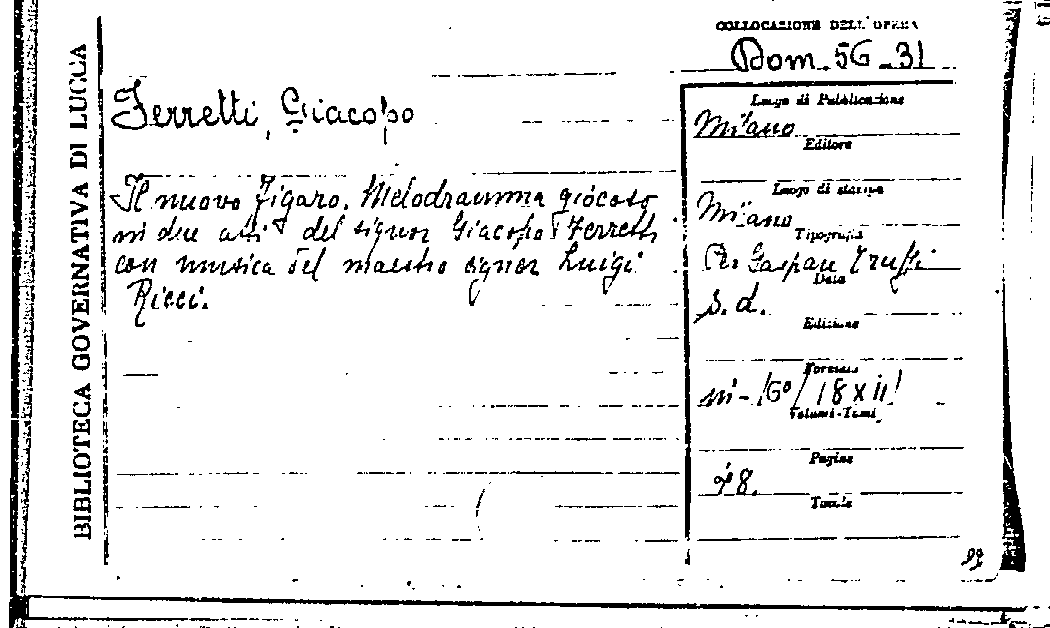 BIBLIOTECA GOVERNATIVA DI LUCCA
COLLOCAZIONE DELL'OPERA
Dom. 56-31
Ferretti, Giacopo
Il nuovo Figaro. Melodramma giocoso
in due atti del signor Giacopo Ferretti
con musica del maestro signor Luigi
Ricci.
Luogo di Pubblicazione
Milano
Editore
Luogo di stampa
Milano
Tipografia
Per Gaspare Truffi
Data
s.d.
Edizione
Formato
in-16º/18x11/
Volumi-Tomi
Pagine
48.
Tavole